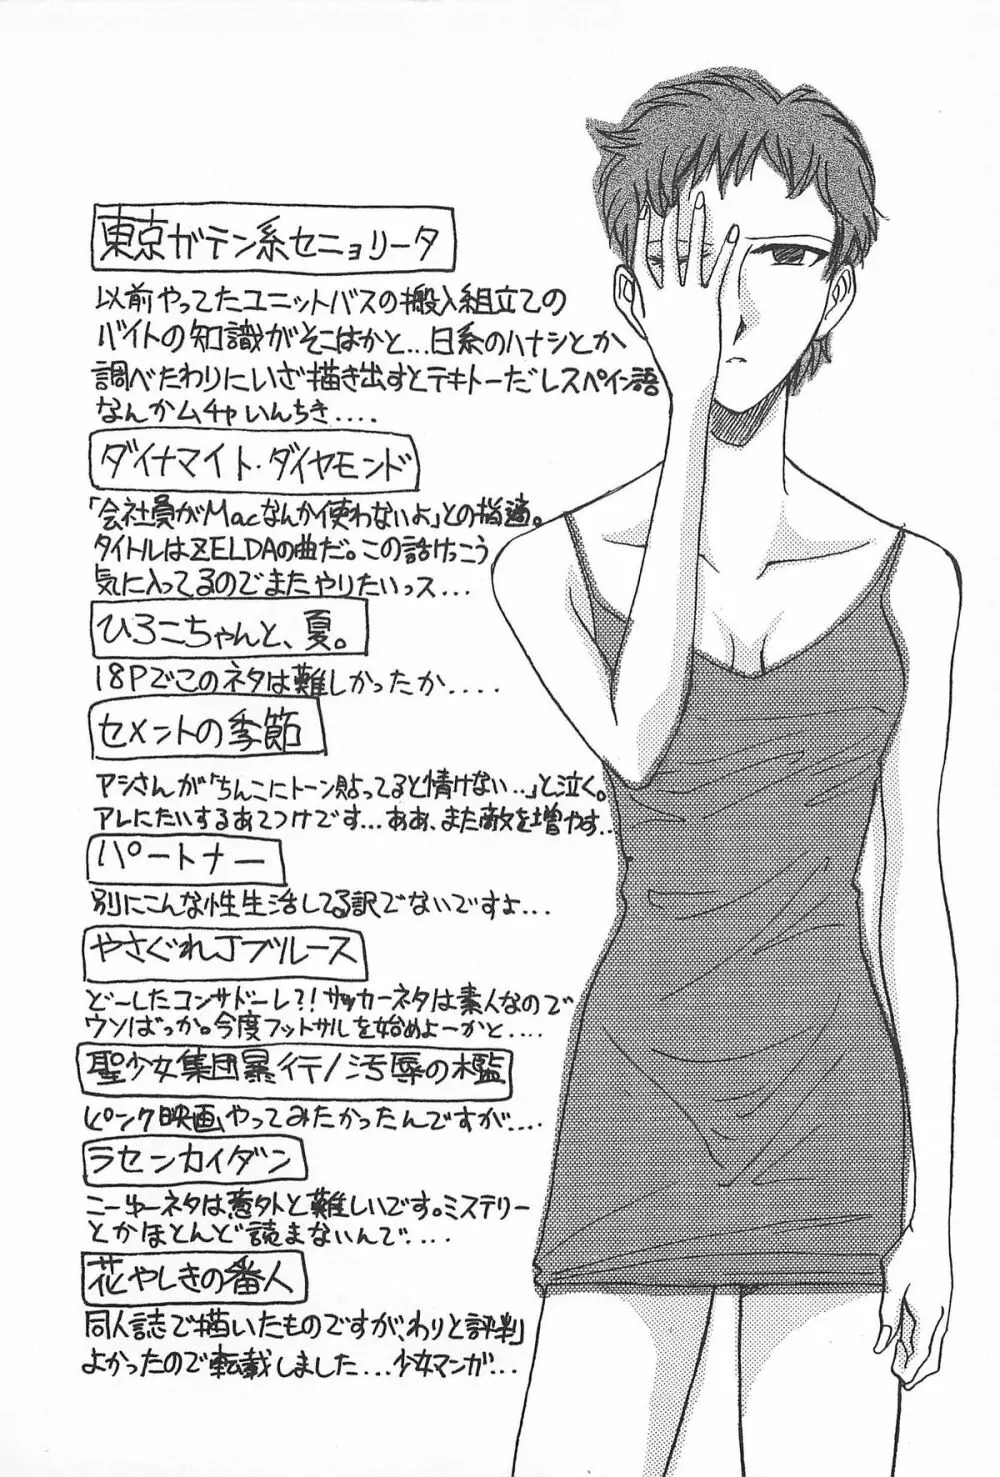 東京ガテン系セニョリータ
以前やってたユニットバスの搬入組立ての
バイトの知識がそこはかと...日系のハナシとか
調べたわりにいざ描き出すとテキトーだしスペイン語
なんかムチャいんちき....
ダイナマイト・ダイヤモンド
「会社員がMacなんか使わないよ」との指適。
タイトルはZELDAの曲だ。この話けっこう
気に入ってるのでまたやりたいっス...
ひろこちゃんと、夏。
18Pでこのネタは難しかったか....
セメントの季節
アシさんが「ちんこにトーン貼ってると情けない...」と泣く。
アレにたいするあてつけです...ああ、また敵を増やす...
パートナー
別にこんな性生活してる訳でないですよ...
やさぐれJブルース
どーしたコンサドーレ?!サッカーネタは素人なので
ウソばっか。今度フットサルを始めよーかと....
聖少女集団暴行/汚辱の檻
ピンク映画、やってみたかったんですが....
ラセンカイダン
こーゆーネタは意外と難しいです。ミステリー
とかほとんど読まないんで....
花やしきの番人
同人誌で描いたものですが、わりと評判
よかったので転載しました...少女マンガ...